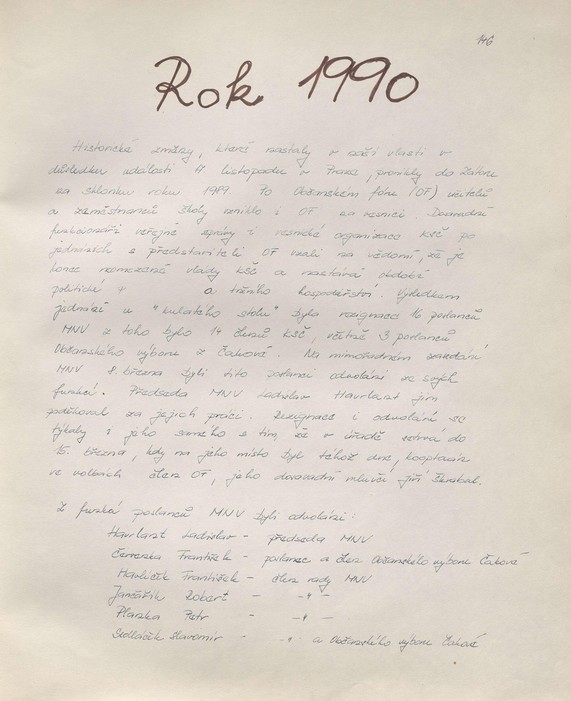 146
Rok 1990
Historické změny, které nastaly v naší vlasti v
důsledku událostí 17 listopadu v Praze, pronikly do Zátoru
na sklonku roku 1989. Po Občanském fóru (OF) učitelů
a zaměstnanců školy vzniklo i OF na vesnici. Dosavadní
funkcionáři veřejné správy i vesnické organizace KSČ po
jednáních s představiteli OF vzali na vědomí, že je
konec neomezené vlády KSČ a nastává období
politické a tržního hospodářství. Výsledkem
jednání u "kulatého stolu" byla rezignace 16 poslanců
MNV z toho bylo 14 členů KSČ, včetně 3 poslanců
Občanského výboru z Čakové. Na mimořádném zasedání
MNV 8. března byli tito poslanci odvoláni ze svých
funkcí. Předseda MNV Ladislav Havrlant jim
poděkoval za jejich práci. Rezignace i odvolání se
týkaly i jeho samého s tím, že v úřadě setrvá do
15. března, kdy na jeho místo byl téhož dne, kooptován
ve volbách člen OF, jeho dosavadní mluvčí Jiří Škrabal.
Z funkcí poslanců MNV byli odvoláni:
Havrlant Ladislav - předseda MNV
Červenka František - poslanec a člen Občanského výboru Čaková
Havlíček František - člen rady MNV
Jančářík Robert - -"-
Planska Petr - -"-
Sedláček Slavomír - -"- a Občanského výboru Čaková